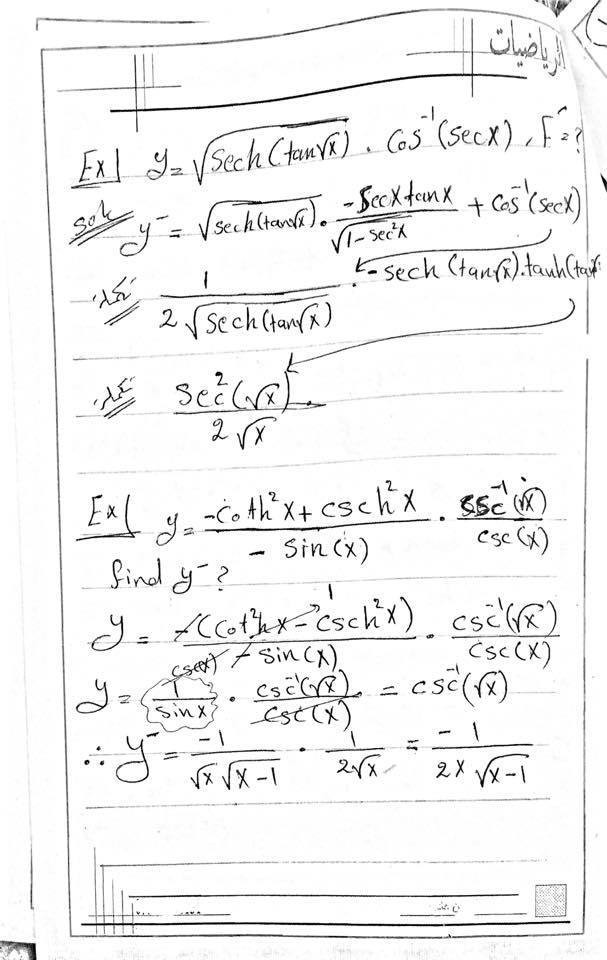 الرياضيات
Ex| y = √sech(tan√x) . Cos⁻¹(secx), F' = ?
sol: y⁻ = √sech(tan√x) . -secx tanx / √1-sec²x + Cos⁻¹(secx)
1 / 2√sech(tan√x) . -sech(tan√x).tanh(tan√x
sec²(√x) / 2√x .
Ex| y = -coth²x + csch²x / -sin(x) . csc⁻¹(√x) / csc(x)
find y⁻ ?
y = -(coth²x - csch²x) 1 / -sin(x) . csc⁻¹(√x) / csc(x)
csc(x)
y = 1 / sinx . csc⁻¹(√x) / csc(x) . = csc⁻¹(√x)
∴ y⁻ = -1 / √x √x-1 . 1 / 2√x = -1 / 2x √x-1